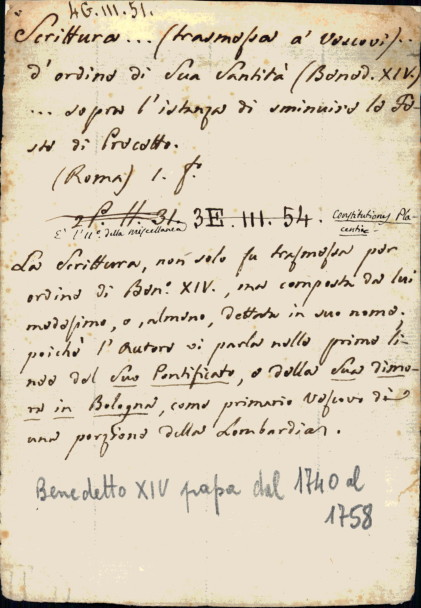 4G.III.51.
Scrittura... (trasmessa a' Vescovi)..
d'ordine di Sua Santità (Bened. XIV.)
... sopra l'istanza di sminuire le Fe-
ste di Precetto.
(Roma) 1. f.
21º. II. 31. 3E.III.54. Constitutiones Pla-
centiae
E' l'11º della miscellanea
La Scrittura, non solo fu trasmessa per
ordine di Ben.º XIV., ma composta da lui
medesimo, o, almeno, dettata in suo nome.
poichè l'Autore vi parla nelle prime li-
nee del Suo Pontificato, e della Sua dimo-
ra in Bologna, come primario Vescovo di
una porzione della Lombardia.
Benedetto XIV papa dal 1740 al
1758